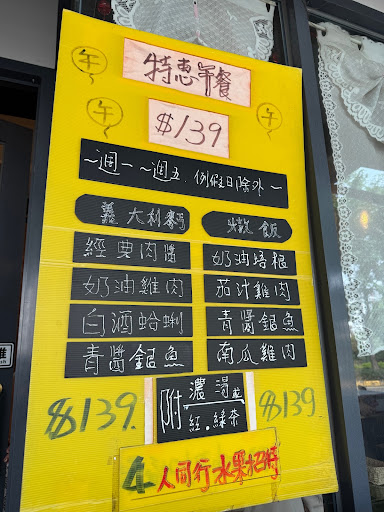 午
特惠午餐
午
$139
午
~週一~週五.例假日除外~
義大利麵
燉飯
經典肉醬
奶油培根
奶油雞肉
茄汁雞肉
白酒蛤蜊
青醬銀魚
青醬銀魚
南瓜雞肉
$139.
附
濃湯
紅.綠奈
$139.
4人同行水果招待